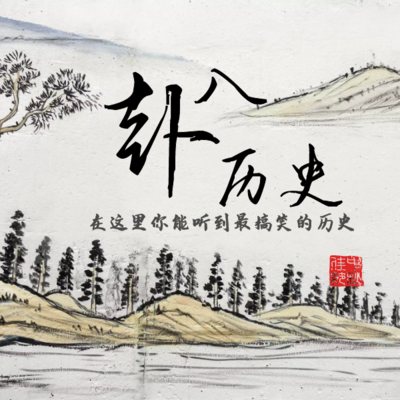 卦八
历史
在这里你能听到最搞笑的历史